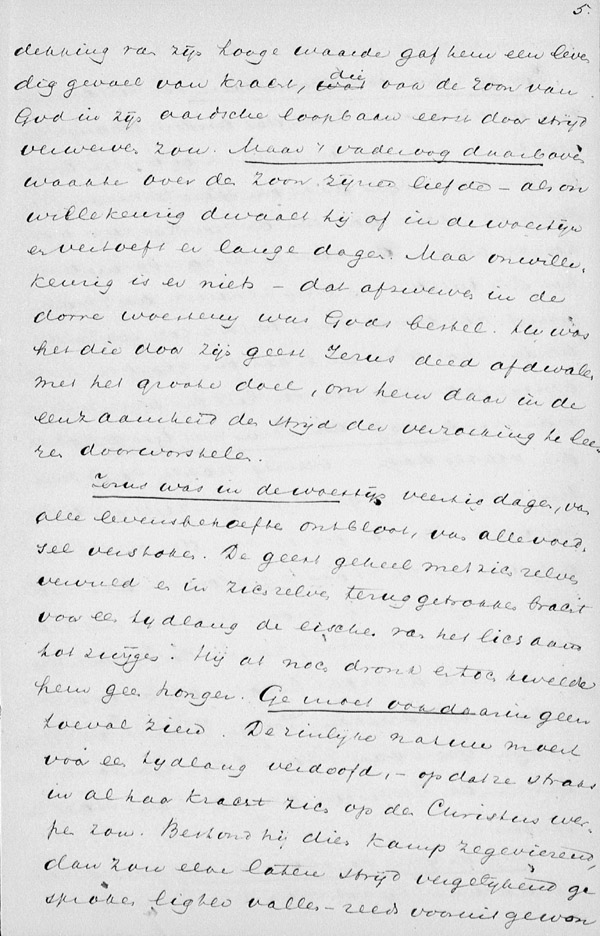 5.
dekking van zijn hooge waarde gaf hem een leven
dig gevoel van kracht, die voor de Zoon van
God in zijn aardsche loopbaan eerst door strijd
verwerven zou. Maar 't vaderoog daarboven
waakte over den Zoon zijner liefde – als on
willekeurig dwaalt hij af in de woestijn
en vertoeft er lange dagen. Maar onwille-
keurig is er niets – dat afzwerven in de
dorre woesteny was Gods bestel. Hij was
het die door zijn geest Jezus deed afdwalen
met het groote doel, om hem daar in de
eenzaamheid den strijd der verzoeking te lee-
ren doorworstelen.
Jezus was in de woestijn veertig dagen, van
alle levensbehoeften ontbloot, van alle voed-
sel verstoken. De geest geheel met zich zelven
vervuld en in zich zelven teruggetrokken bracht
voor een tydlang de eischen van het lichaam
tot zwijgen. Hij at noch dronk en toch kwelde
hem geen honger. Ge moet ook daarin geen
toeval zien. De zinlyke natuur moest
voor een tydlang verdoofd, – opdat ze straks
in al haar kracht zich op den Christus wer-
pen zou. Bestond hij dien kamp zegevierend,
dan zou elke latere strijd vergelykend ge
sproken lichter vallen – reeds vooruit gewon